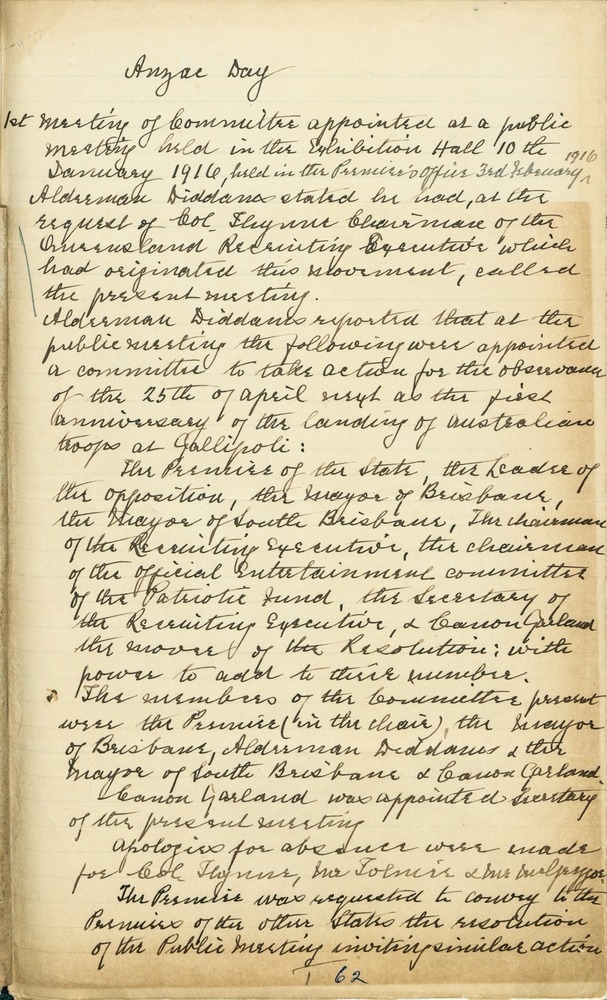 Anzac Day
1st meeting of Committee appointed at a public
meeting held in the Exhibition Hall 10th
January 1916, held in the Premier's Office 3rd February 1916
Alderman Diddams stated he had, at the
request of Col. Thynne Chairman of the
Queensland Recruiting Executive which
had originated this movement, called
the present meeting.
Alderman Diddams reported that at the
public meeting the following were appointed
a committee to take action for the observance
of the 25th of April next as the first
anniversary of the landing of Australian
troops at Gallipoli:
The Premier of the State, the Leader of
the opposition, the Mayor of Brisbane,
the Mayor of South Brisbane, The chairman
of the Recruiting Executive, the chairman
of the Official Entertainment committee
of the Patriotic Fund, the Secretary of
the Recruiting Executive, & Canon Garland
the mover of the Resolution; with
power to add to their number.
The members of the Committee present
were the Premier (in the chair), the Mayor
of Brisbane, Alderman Diddams & the
Mayor of South Brisbane & Canon Garland.
Canon Garland was appointed Secretary
of the present meeting
Apologies for absence were made
for Col. Thynne, Mr Tolmie & Mr McGregor.
The Premier was requested to convey to the
Premiers of the other States the resolution
of the Public Meeting inviting similar action
1 62